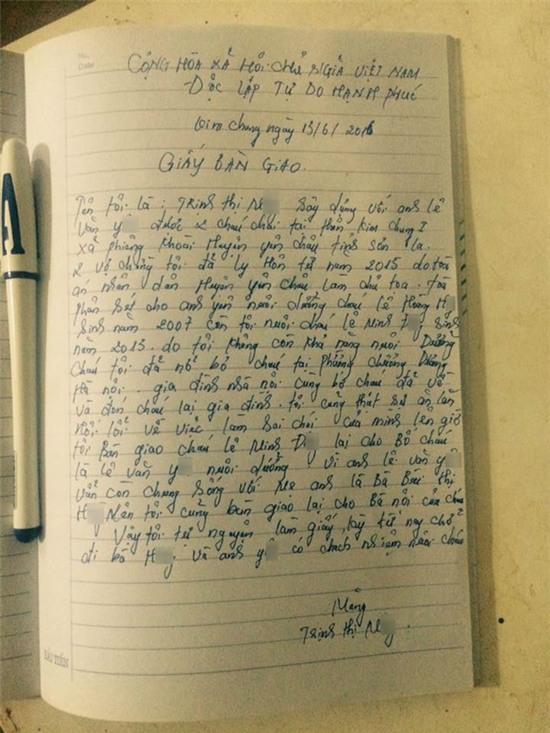 No.
Date
CỘNG HÒA XÃ HỘI CHỦ NGHĨA VIỆT NAM
ĐỘC LẬP TỰ DO HẠNH PHÚC
Kim chung ngày 13/6/2016
GIẤY BÀN GIAO
Tên tôi là: Trịnh thị M Xây dựng với anh lê
văn Y được 2 cháu tại thôn Kim chung I
xã phiêng khoài Huyện yên châu tỉnh sơn la.
2 vợ chồng tôi đã ly Hôn từ năm 2015 do tòa
án nhân dân Huyện yên châu làm chủ tọa. tòa
phân xử cho anh yên nuôi dưỡng cháu lê Hoàng H
Sinh năm 2007 còn tôi nuôi cháu lê Minh Đ Sinh
năm 2013. do tôi không còn khả năng nuôi Dưỡng
cháu tôi đã nỡ bỏ cháu tại phường chương Dương
Hà nội. gia đình nhà nội cùng bố cháu đã về
và đón cháu lại gia đình. tôi cũng thật sự ăn năn
Hối lỗi về việc làm sai trái của mình lên giờ
tôi Bàn giao cháu lê Minh Đ lại cho Bố cháu
là lê văn Y nuôi dưỡng vì anh lê văn Y
vẫn còn chung sống với Mẹ anh là Bà Bùi thị
H Nên tôi cùng bàn giao lại cho Bà nội của cháu
Vậy tôi tự nguyện làm giấy này từ nay chở
đi bà H và anh Y có chách nhiệm nuôi cháu
Mạng
Trịnh thị M
A